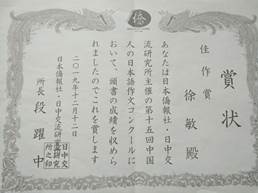 賞状
佳作賞
徐敏殿
あなたは日本僑報社・日中交
流研究所主催の第十五回中国
人の日本語作文コンクールに
おいて、頭書の成績を収めら
れましたのでこれを賞します
二〇一九年十二月十二日
日本僑報社・日中交流研究所
所長 段躍中